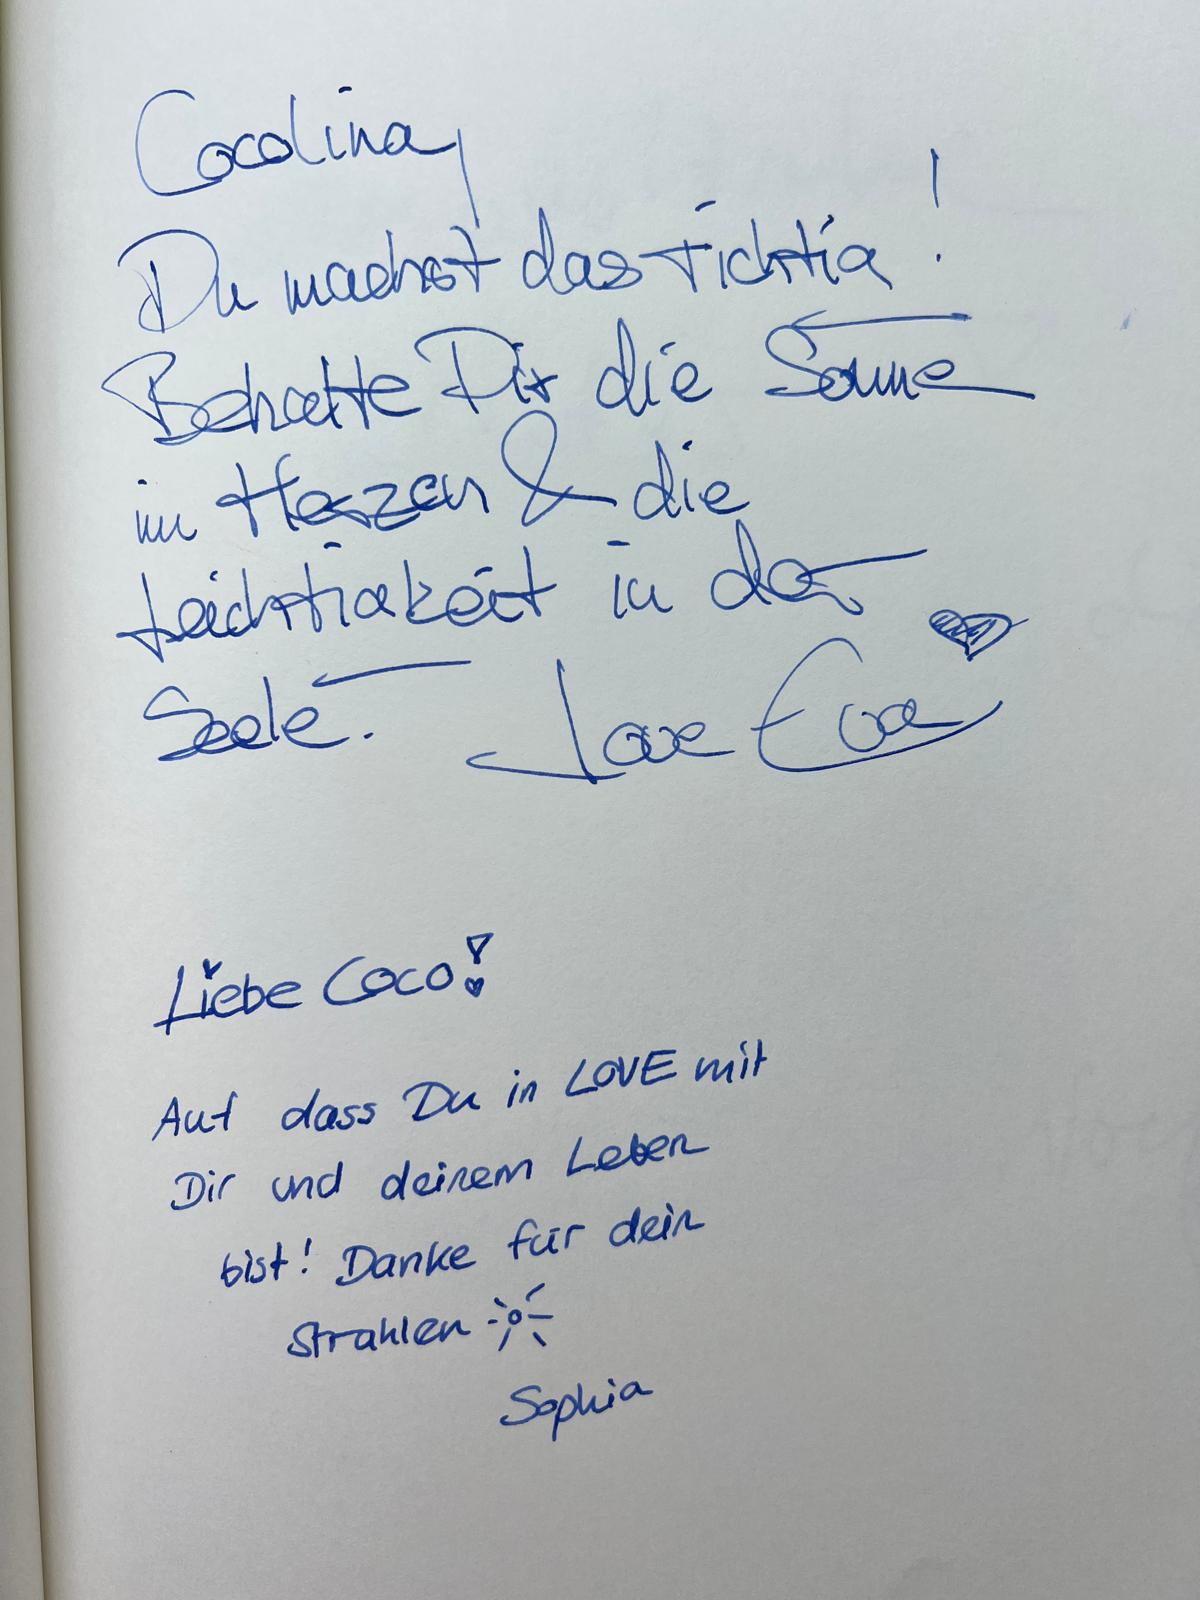 Cocolina,
Du machst das richtig!
Behalte Dir die Sonne
im Herzen & die
Leichtigkeit in der
Seele.
Love Eva
Liebe Coco!
Auf dass Du in LOVE mit
Dir und deinem Leben
bist! Danke für dein
Strahlen
Sophia